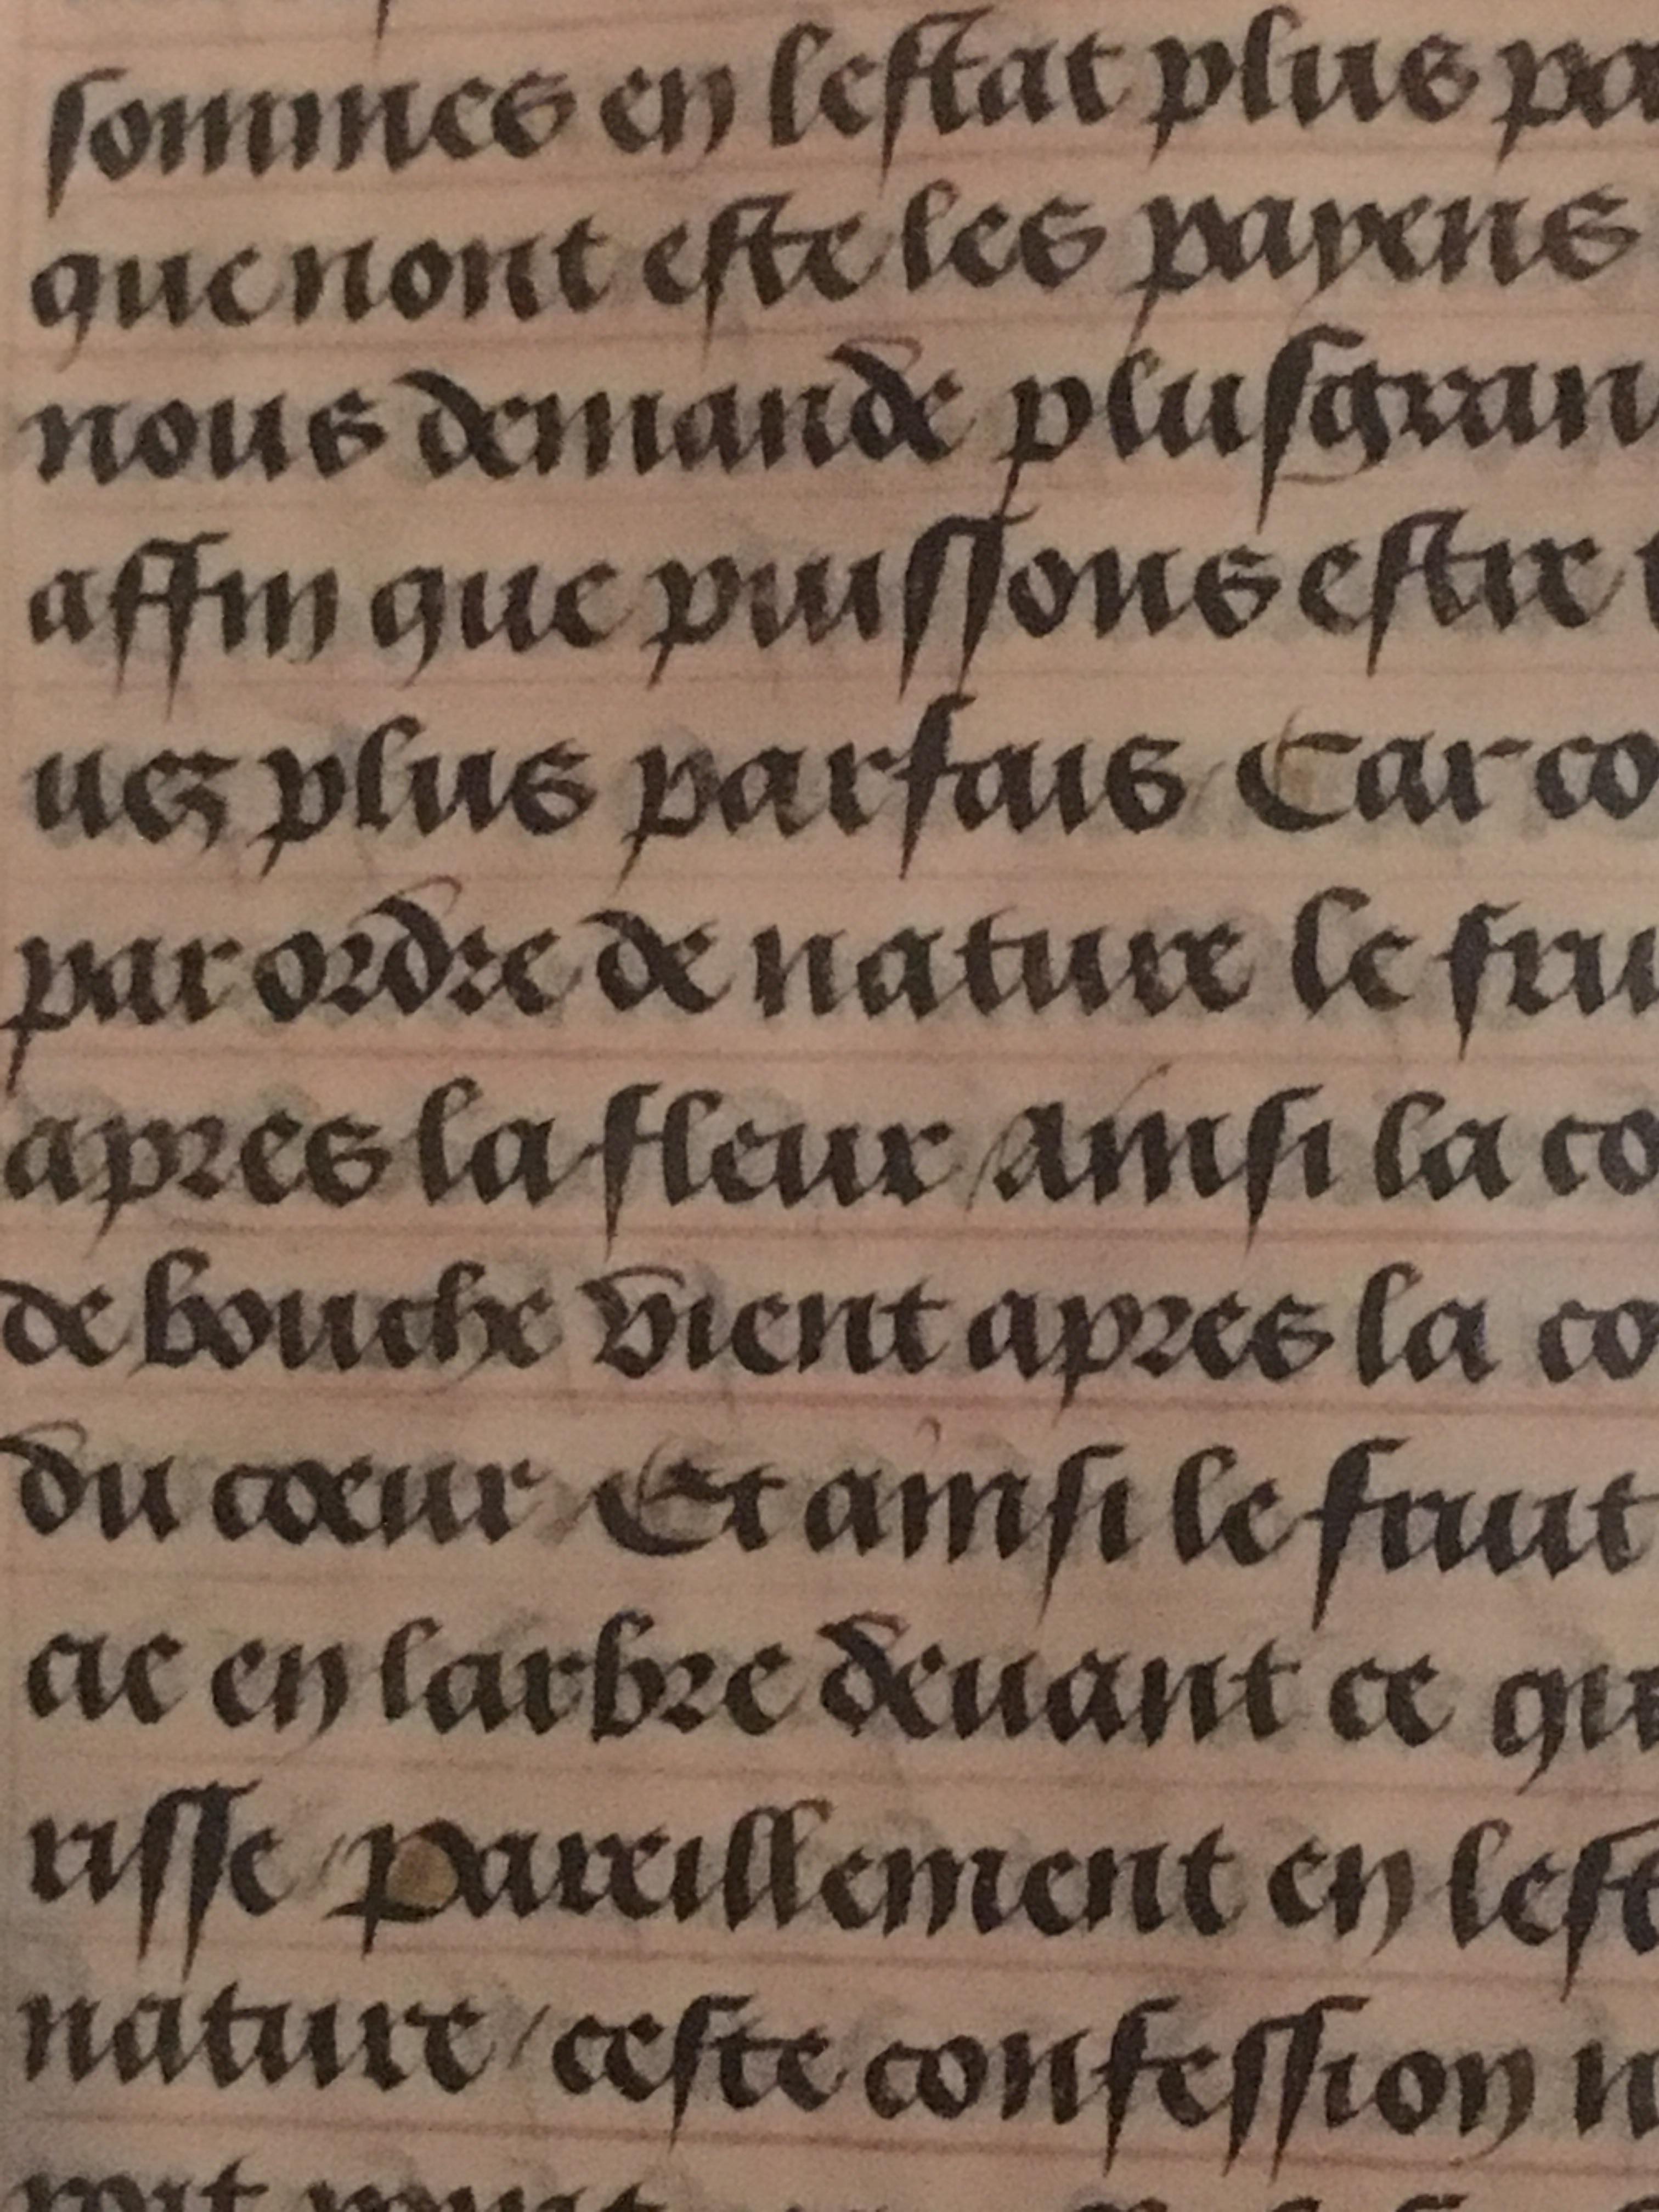 sommes en lestat plus pa
que nont este les payens
nous demande plus gran
affin que puissons estre t
uez plus parfais Car co
par ordre de nature le fru
apres la fleur / Ainsi la co
de bouche vient apres la co
du cœur / Et ainsi le fruit
cie en larbre deuant ce qu
risse / Pareillement en lest
nature / ceste confession n